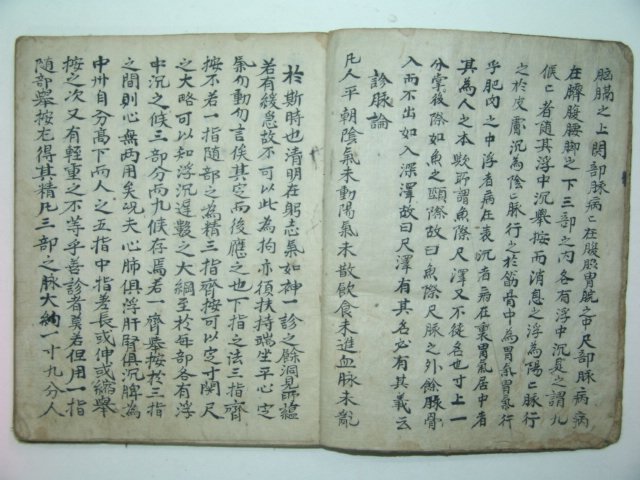 膈之上関部脉病亡在腹腸胃脘之中尺部脉病病
在臍腹腰脚之下三部之內各有浮中沉是之謂九
候亡者随其浮中沉舉按而消息之浮為陽亡脉行
之於皮膚沉為陰亡脉行之於筋骨中為胃氣胃氣行
乎肥肉之中浮者病在表沉者病在裏胃氣居中者
其為人之本歟所謂魚際尺澤又不徒名也寸上一
分掌後際如魚之頤際故曰魚際尺脉之外餘臂骨
入而不出如入深澤故曰尺澤有其名必有其義云
診脉論
凡人平朝陰氣未動陽氣未散飲食未進血脉未亂
於斯時也清明在躬志氣如神一診之餘洞見
若有緩急故不可以此為拘亦須扶持端坐平心定
氣勿動勿言俟其定而後應之也下指之法三指齊
按不若一指随部之為精三指齊按可以定寸関尺
之大略可以知浮沉遲數之大綱至於每部各有浮
中沉之候三部分而九候存焉若一齊舉按於三指
之間則心無两用矣况夫心肺俱浮肝腎俱沉脾為
中州自分高下而人之五指中指差長或伸或縮舉
按之次又有輕重之不等乎善診者莫若但用一指
随部舉按尤得其精凡三部之脉大約一寸九分人